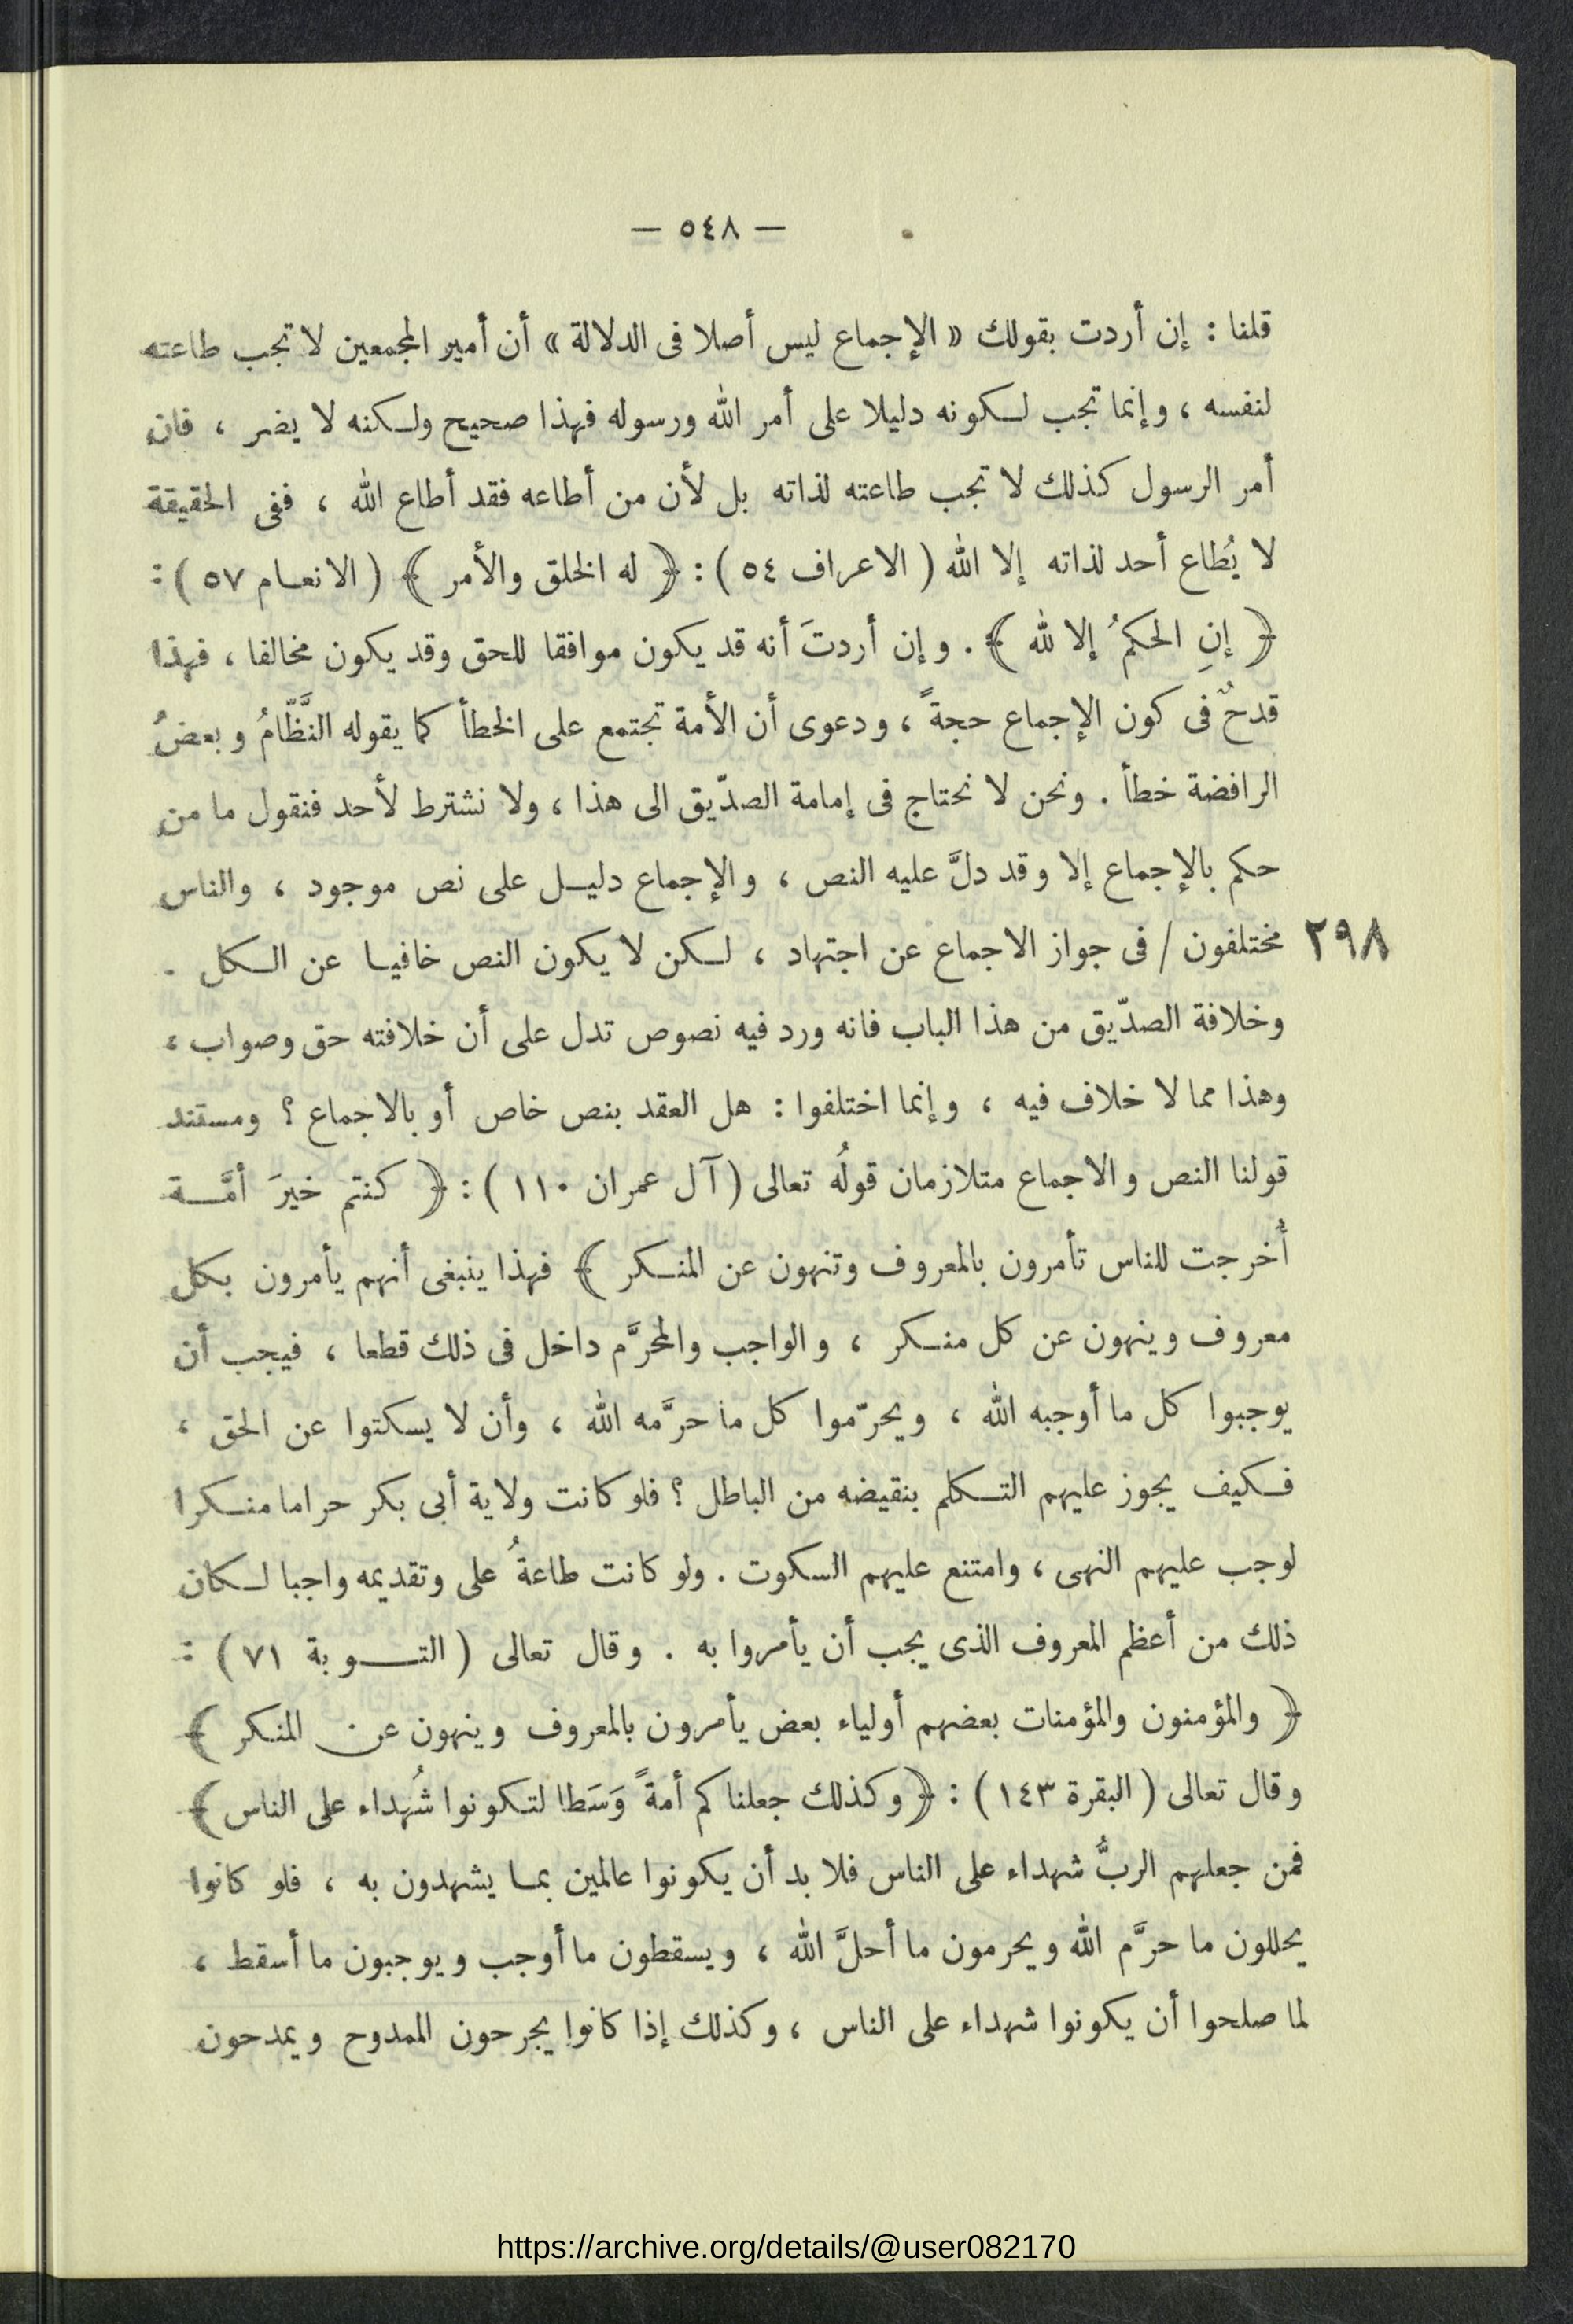 — ٥٤٨ —
قلنا : إن أردت بقولك « الإجماع ليس أصلا فى الدلالة » أن أمير المجمعين لا تجب طاعته
لنفسه ، وإنما تجب لكونه دليلا على أمر الله ورسوله فهذا صحيح ولكنه لا يضر ، فان
أمر الرسول كذلك لا تجب طاعته لذاته بل لأن من أطاعه فقد أطاع الله ، ففى الحقيقة
لا يُطاع أحد لذاته إلا الله ( الاعراف ٥٤ ) : ﴿ له الخلق والأمر ﴾ ( الانعام ٥٧ ) :
﴿ إنِ الحكمُ إلا لله ﴾ . وإن أردتَ أنه قد يكون موافقا للحق وقد يكون مخالفا ، فهذا
قدحٌ فى كون الإجماع حجةً ، ودعوى أن الأمة تجتمع على الخطأ كما يقوله النَّظّامُ وبعضُ
الرافضة خطأ . ونحن لا نحتاج فى إمامة الصدّيق الى هذا ، ولا نشترط لأحد فنقول ما من
حكم بالإجماع إلا وقد دلَّ عليه النص ، والإجماع دليل على نص موجود ، والناس
٢٩٨ مختلفون / فى جواز الاجماع عن اجتهاد ، لكن لا يكون النص خافيا عن الكل .
وخلافة الصدّيق من هذا الباب فانه ورد فيه نصوص تدل على أن خلافته حق وصواب ،
وهذا مما لا خلاف فيه ، وإنما اختلفوا : هل العقد بنص خاص أو بالاجماع ؟ ومستند
قولنا النص والاجماع متلازمان قولُه تعالى ( آل عمران ١١٠ ) : ﴿ كنتم خيرَ أمَّة
أُخرجت للناس تأمرون بالمعروف وتنهون عن المنكر ﴾ فهذا ينبغى أنهم يأمرون بكل
معروف وينهون عن كل منكر ، والواجب والمحرَّم داخل فى ذلك قطعا ، فيجب أن
يوجبوا كل ما أوجبه الله ، ويحرّموا كل ما حرَّمه الله ، وأن لا يسكتوا عن الحق ،
فكيف يجوز عليهم التكلم بنقيضه من الباطل ؟ فلو كانت ولاية أبى بكر حراما منكرا
لوجب عليهم النهى ، وامتنع عليهم السكوت . ولو كانت طاعةُ على وتقديمه واجبا لكان
ذلك من أعظم المعروف الذى يجب أن يأمروا به . وقال تعالى ( التوبة ٧١ ) :
﴿ والمؤمنون والمؤمنات بعضهم أولياء بعض يأمرون بالمعروف وينهون عن المنكر ﴾
وقال تعالى ( البقرة ١٤٣ ) : ﴿ وكذلك جعلناكم أمةً وَسَطا لتكونوا شُهداء على الناس ﴾
فمن جعلهم الربُّ شهداء على الناس فلا بد أن يكونوا عالمين بما يشهدون به ، فلو كانوا
يحللون ما حرَّم الله ويحرمون ما أحلَّ الله ، ويسقطون ما أوجب ويوجبون ما أسقط ،
لما صلحوا أن يكونوا شهداء على الناس ، وكذلك إذا كانوا يجرحون الممدوح ويمدحون
https://archive.org/details/@user082170